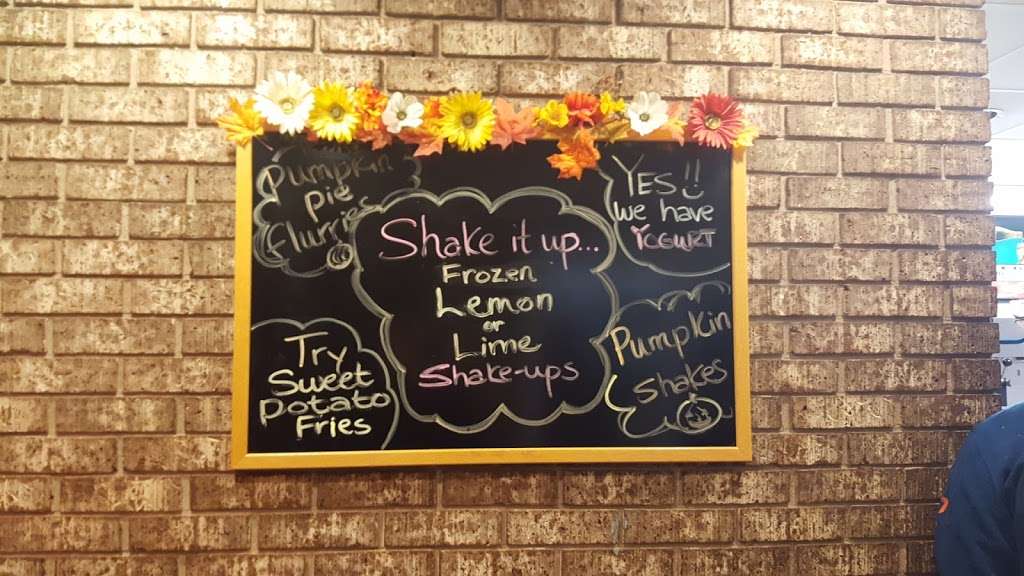 Pumpkin
pie
flurries
Shake it up...
Frozen
Lemon
or
Lime
Shake-ups
YES!!
we have
YOGURT
Try
Sweet
potato
Fries
Pumpkin
Shakes